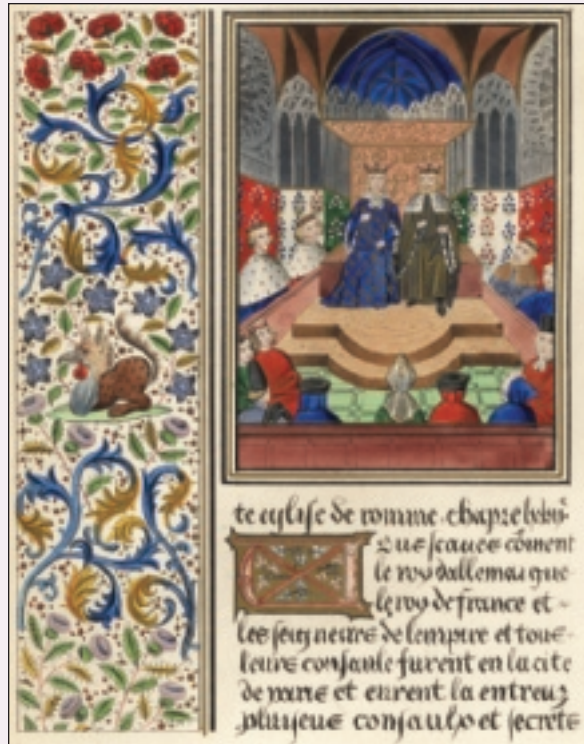 te eglise de romme. chapre
Vous scaues cōment
le roy dallemaigne
le roy de france et
les seigneurs de lempire et tous
leurs consaulx furent en la cite
de reins et eurent la entreulz
plusieurs consaulx et secrets